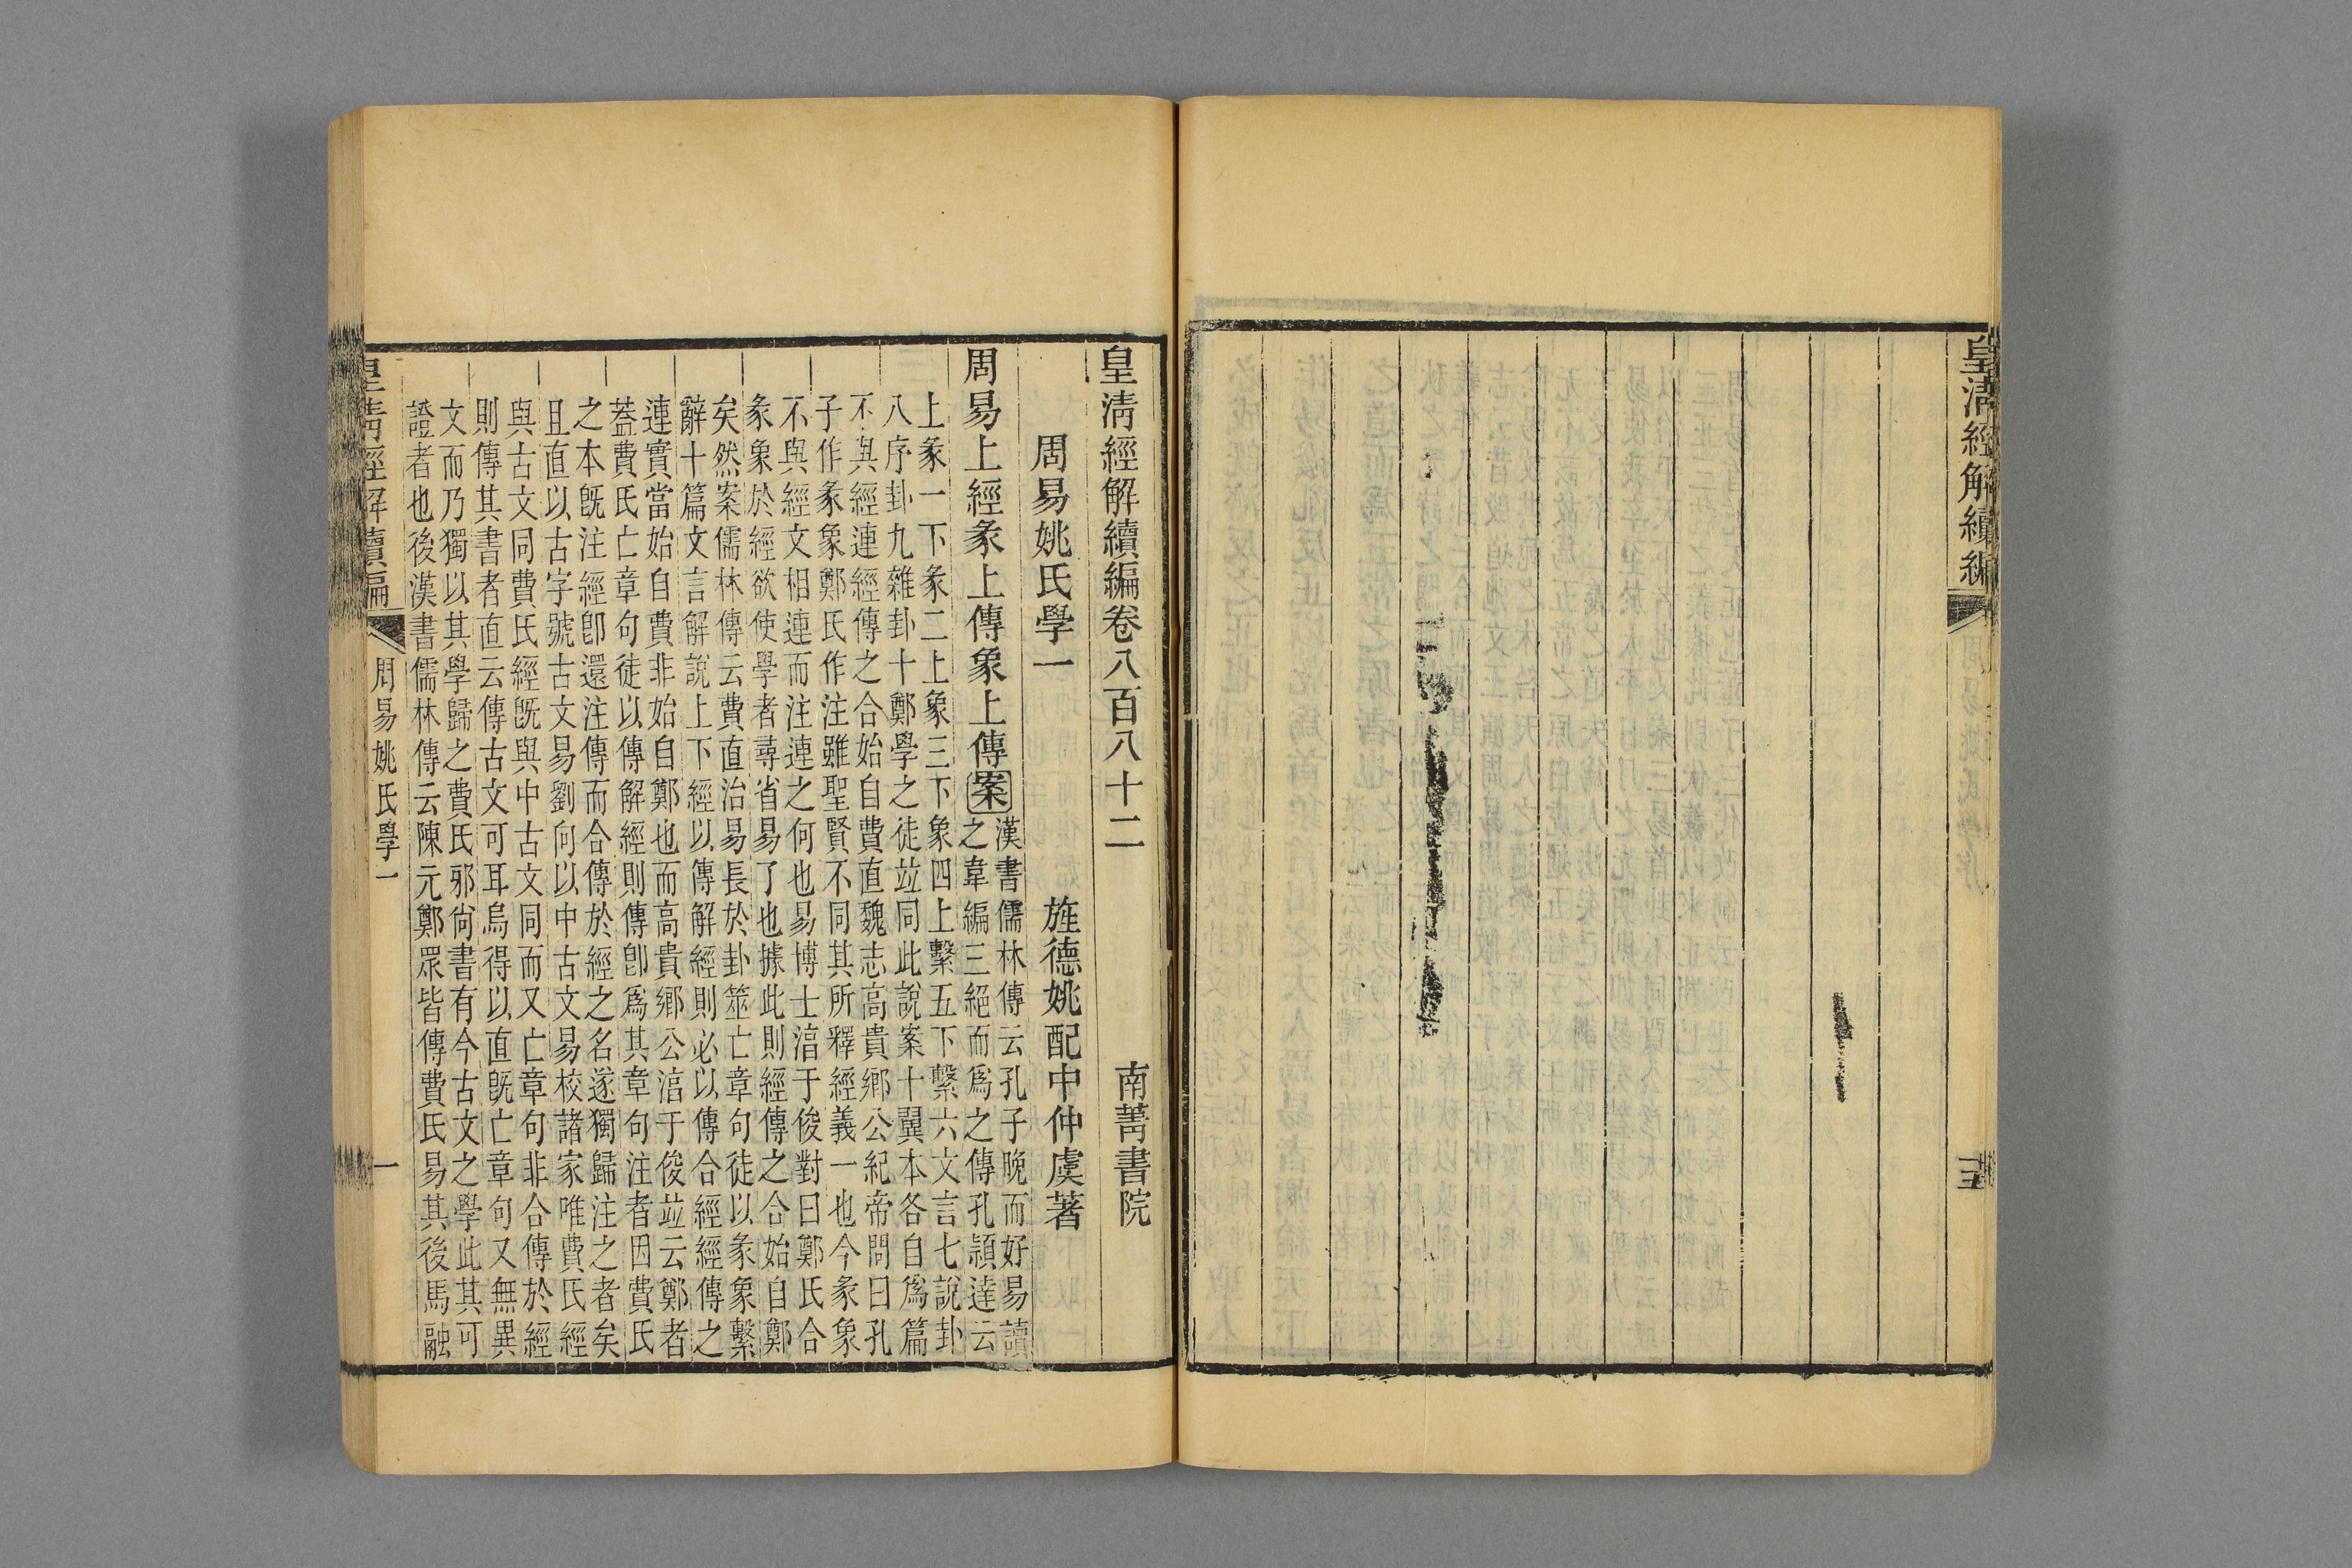 皇清經解續編
皇清經解續編卷八百八十二
南菁書院
周易姚氏學一
旌德姚配中仲虞著
周易上經彖上傳象上傳案
漢書儒林傳云孔子晚而好易讀
之韋編三絕而爲之傳孔穎達云
上彖一下彖二上象三下象四上繫五下繫六文言七說卦
八序卦九雜卦十鄭學之徒竝同此說案十翼本各自爲篇
不與經連經傳之合始自費直魏志高貴鄉公紀帝問曰孔
子作彖象鄭氏作注雖聖賢不同其所釋經義一也今彖象
不與經文相連而注連之何也易博士淳于俊對曰鄭氏合
彖象於經欲使學者尋省易了也據此則經傳之合始自鄭
矣然案儒林傳云費直治易長於卦筮亡章句徒以彖象繫
辭十篇文言解說上下經以傳解經則必以傳合經經傳之
連實當始自費非始自鄭也而高貴鄉公淳于俊竝云鄭者
葢費氏亡章句徒以傳解經則傳卽爲其章句注者因費氏
之本旣注經卽還注傳而合傳於經之名遂獨歸注之者矣
且直以古字號古文易劉向以中古文易校諸家唯費氏經
與古文同費氏經旣與中古文同而又亡章句非合傳於經
則傳其書者直云傳古文可耳烏得以直旣亡章句又無異
文而乃獨以其學歸之費氏邪尙書有今古文之學此其可
證者也後漢書儒林傳云陳元鄭眾皆傳費氏易其後馬融
皇清經解續編
周易姚氏學一
一